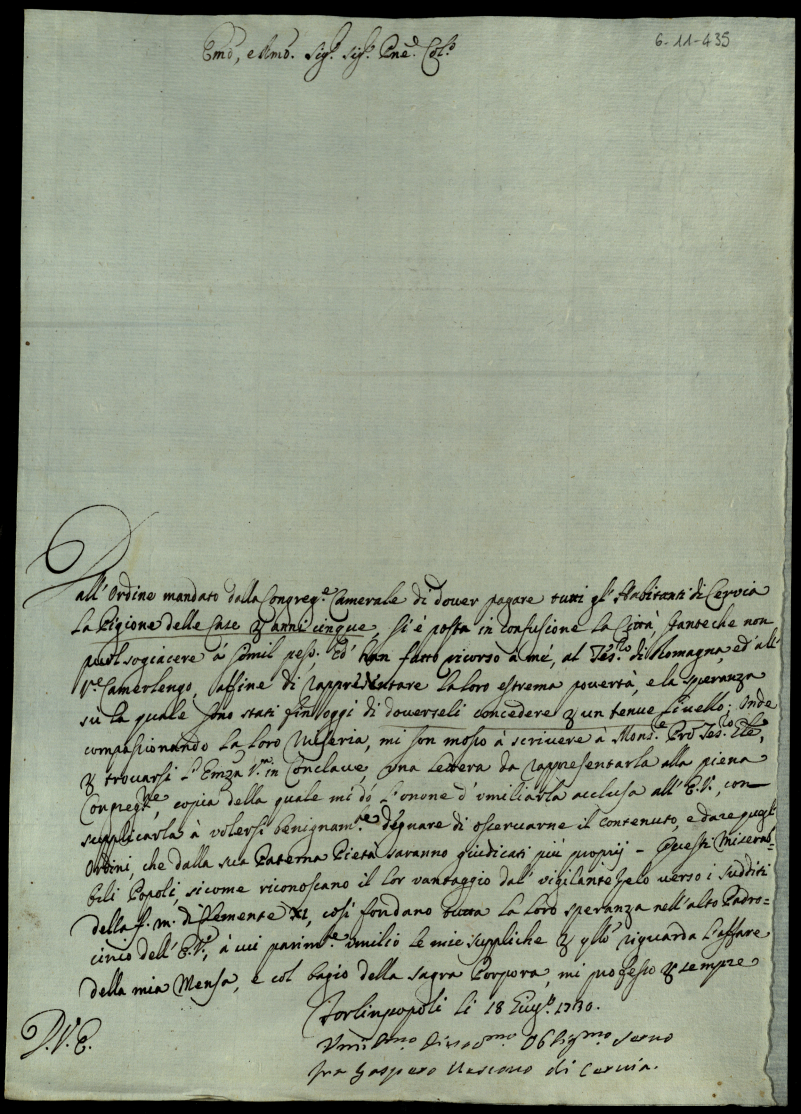 6-11-435
Emõ, e Rmõ. Sig.r Sig.r Pnẽ. Col.o
Dall' Ordine mandato dalla Congreg.e Camerale di dover pagare tutti gl' Habitanti di Cervia
la Pigione delle Case p anni cinque si è posta in confusione la Città, stante che non
puol sogiacere á simil peso. Ed' han fatto ricorso a mé, al Tes.ro di Romagna, ed' all'
V.e Camerlengo, affine di rappresentare la loro estrema povertà, e la speranza
sù la quale sono stati fin' oggi di doverseli concedere p un tenue Livello; Onde
compasionando la loro Miseria, mi son mosso à scrivere à Mons.e Pro Tes.ro
p trovarsi l' Emza V.ra in Conclave, una lettera da rappresentarla alla piena
Congreg.ne, copia della quale mi dó l' onore d' umiliarla acclusa all' E.V., con
supplicarla à volersi benignam.te degnare di osservarne il contenuto, e dare quegl'
Ordini, che dalla sua Paterna Pietà saranno giudicati più proprij - Questi Misera-
bili Popoli, sicome riconoscano il lor vantaggio dal' vigilante zelo verso i sudditi
della f. m. di Clemente XI, così fondano tutta la loro speranza nell' alto Padro=
cinio dell' E.V., à cui parim.te umilio le mie suppliche p q.llo riguarda l' affare
della mia Mensa, e col bagio della Sagra Porpora, mi professo p sempre
Forlimpopoli li 18 Giug.o 1730.
D. V. E.
Umil.mo Divo.mo Oblig.mo Servo
fra Gaspero Vescovo di Cervia.